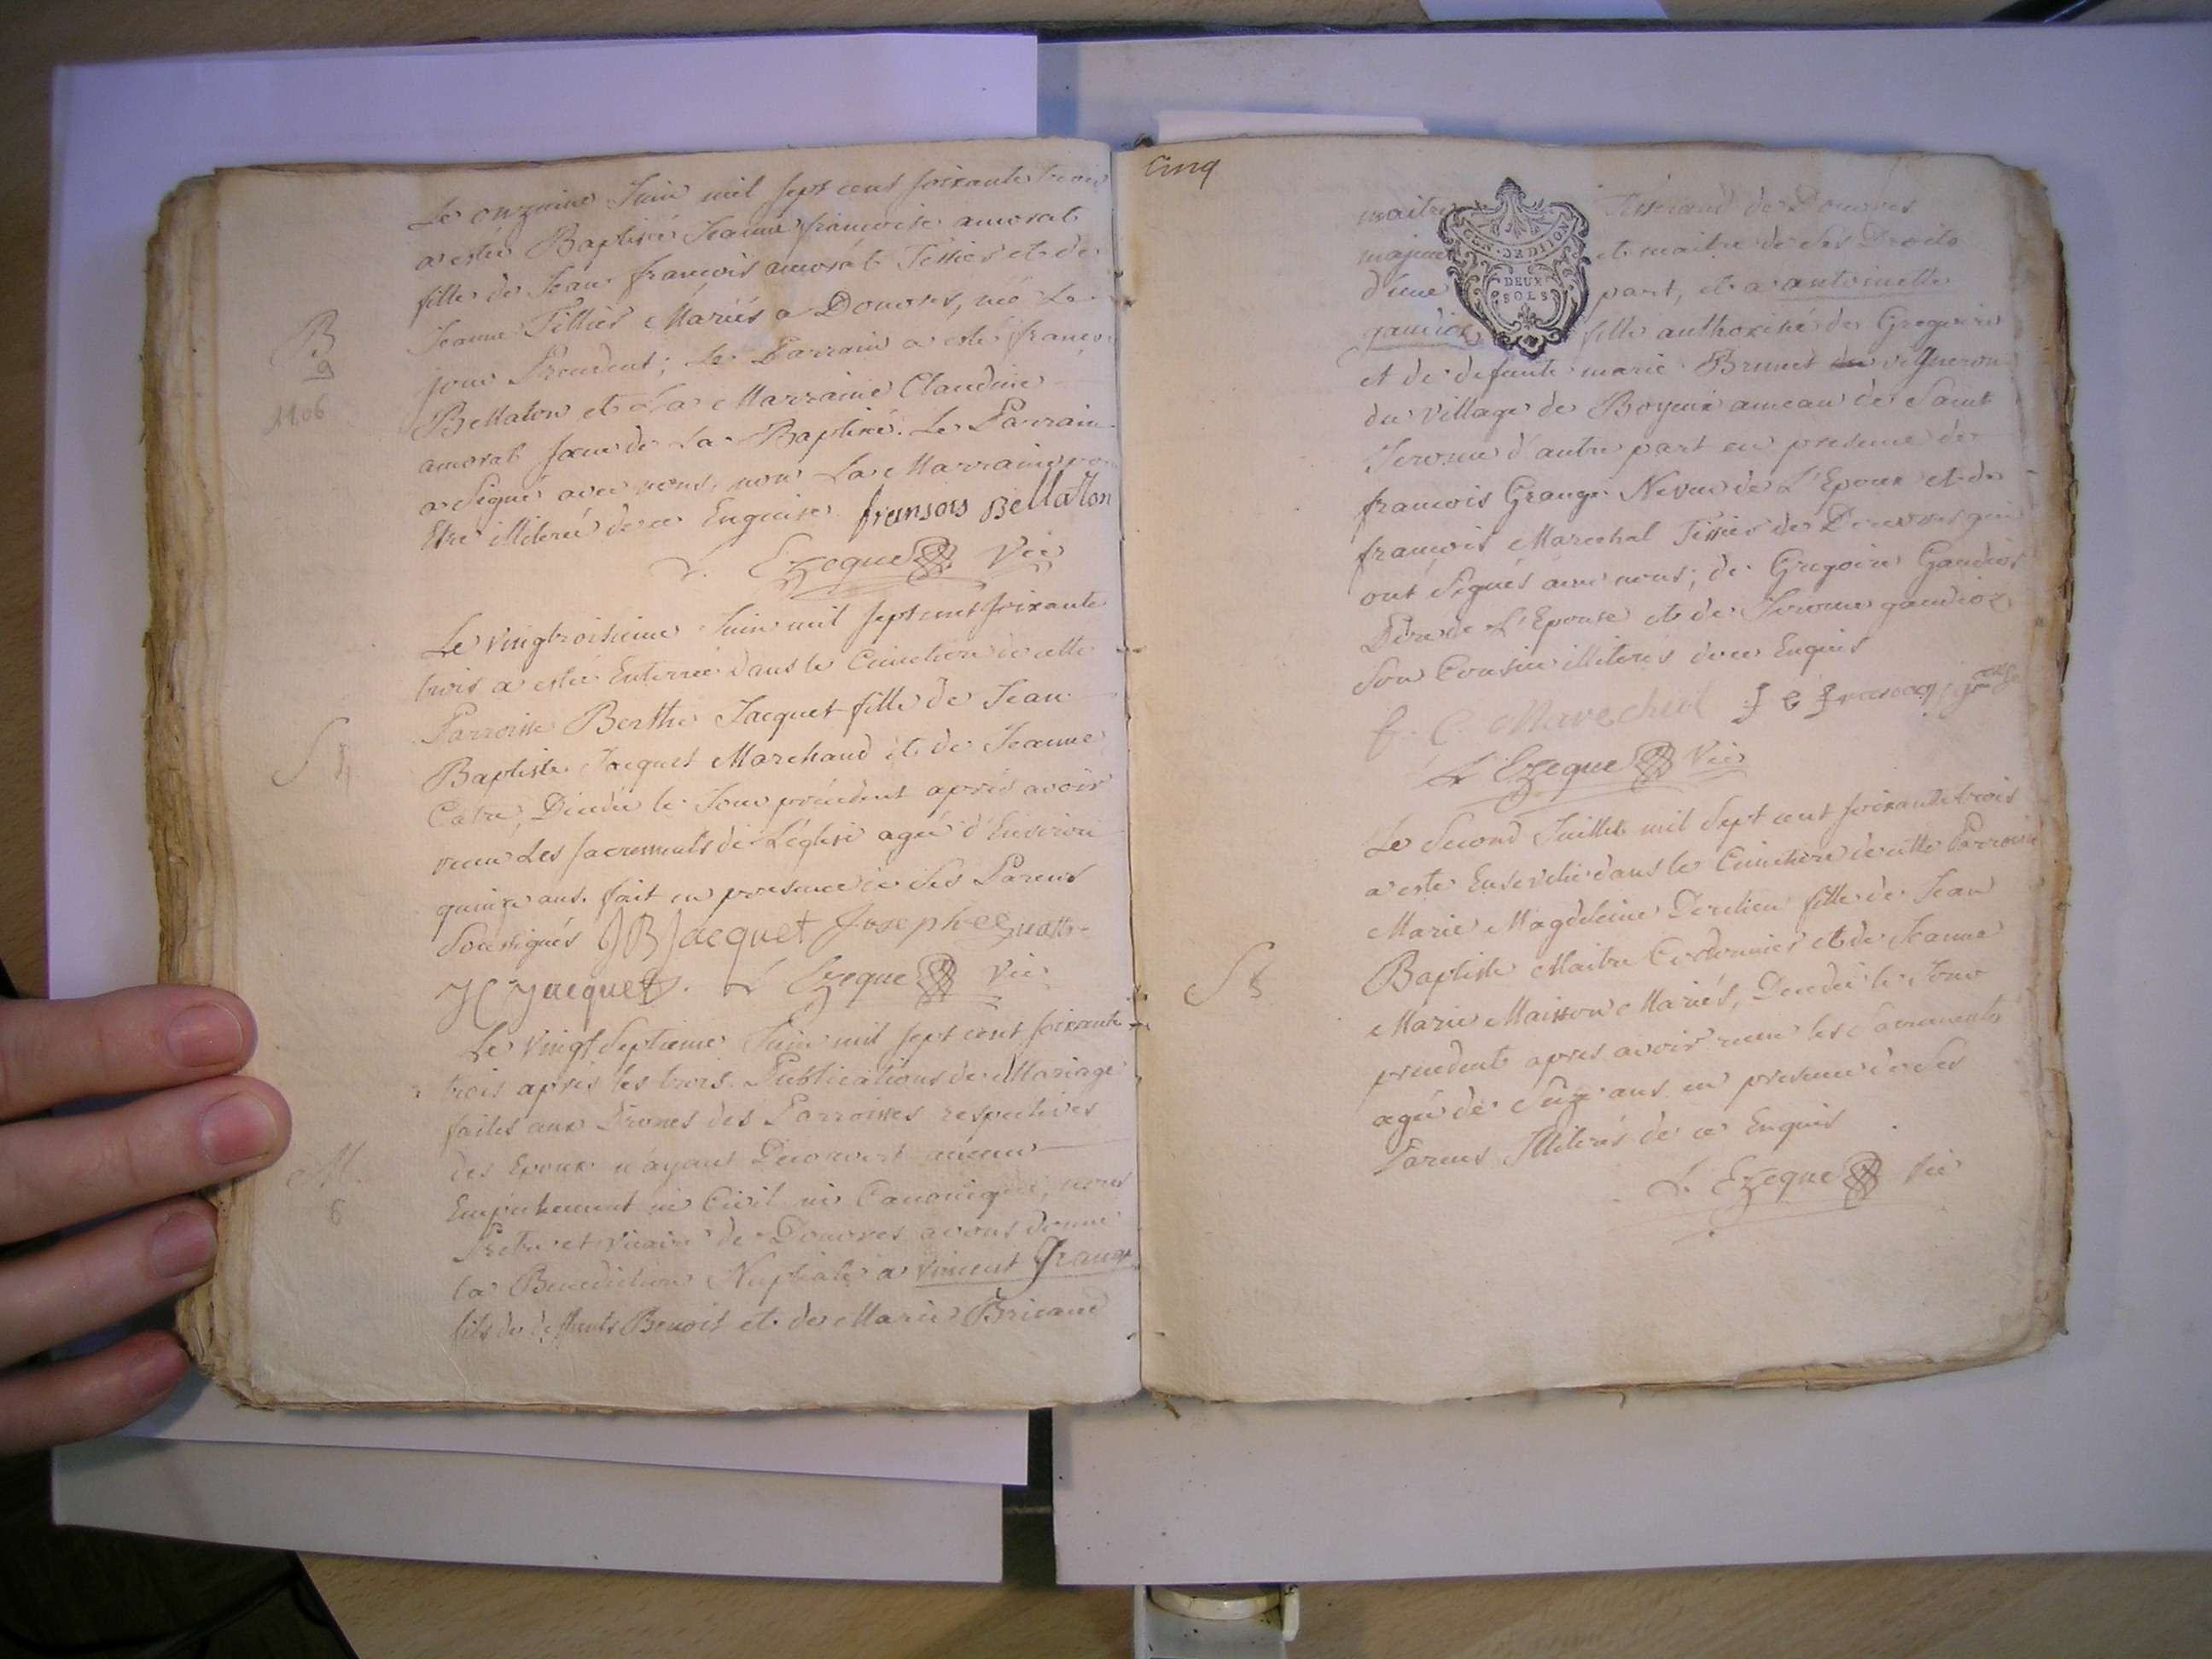 Le onzieme Juin mil sept cens soixante trois
a estée Baptisée Jeanne francoise amorat
fille de Jean francois amorat Tissier et de
Jeanne Tillier Mariés a Douvres, née Le
B
9
1106
jour Precedent; Le Parrain a esté franco
Bellaton et La Marraine Claudine
amorat soeur de La Baptisée. Le Parrain
a Signé avec nous, non La Marraine po
Etre illiterée de ce Enquise fransois Bellaton
L. Ezeque Vic
Le vingtroisieme Juin mil sept cent soixante
trois a estée Enterrée dans le Cimetiere de cette
Parroisse Berthe Jacquet fille de Jean
S
Baptiste Jacquet Marchand et de Jeanne
Catre, Decedée le Jour précedent aprés avoir
receu Les sacrements de L'église agée d'Environ
quinze ans. fait en presence de Ses Parens
Soussignés JB Jacquet Joseph
Jacquet. L Ezeque Vic
Le vingt Septieme Juin mil sept cent soixante
trois aprés les trois Publications de Mariage
faites aux Prones des Parroisses respectives
M.
6
des Epoux n'ayant Decouvert aucun
Empechement ni Civil ni Canonique, nous
Pretre et vicaire de Douvres avons donné
la Benediction Nuptiale a vincent Grange
fils de deffunts Benoit et de Marie Bricand
Cinq
maitre Tisserand de Douvres
majeur et maitre de Ses Droits
GEN. DE DIJON
DEUX
SOLS
d'une part, et a antoinette
gaudioz fille authorisée de Gregoire
et de defunte marie Brunet vigneron
du village de Boyeux ameau de Saint
Jerome d'autre part en presence de
francois Grange Neveu de L'Epoux et de
francois Marechal Tissier de Douvres qui
ont Signés avec nous; de Gregoire Gaudioz
Pere de L'Epouse et de Jerome gaudioz
Son Cousin illiterés de ce Enquis
f. C. Marechal
L Ezeque Vic
Le Second Juillet mil Sept cent soixante trois
a esté Ensevelie dans le Cimetiere de cette Parroisse
Marie Magdeleine fille de Jean
S
Baptiste Maitre Cordonnier et de Jeanne
Marie Maisson Mariés, Decedée le Jour
precedent apres avoir receu les Sacrements
agée de Seize ans en presence de Ses
Parens Illiterés de ce Enquis
L. Ezeque Vic